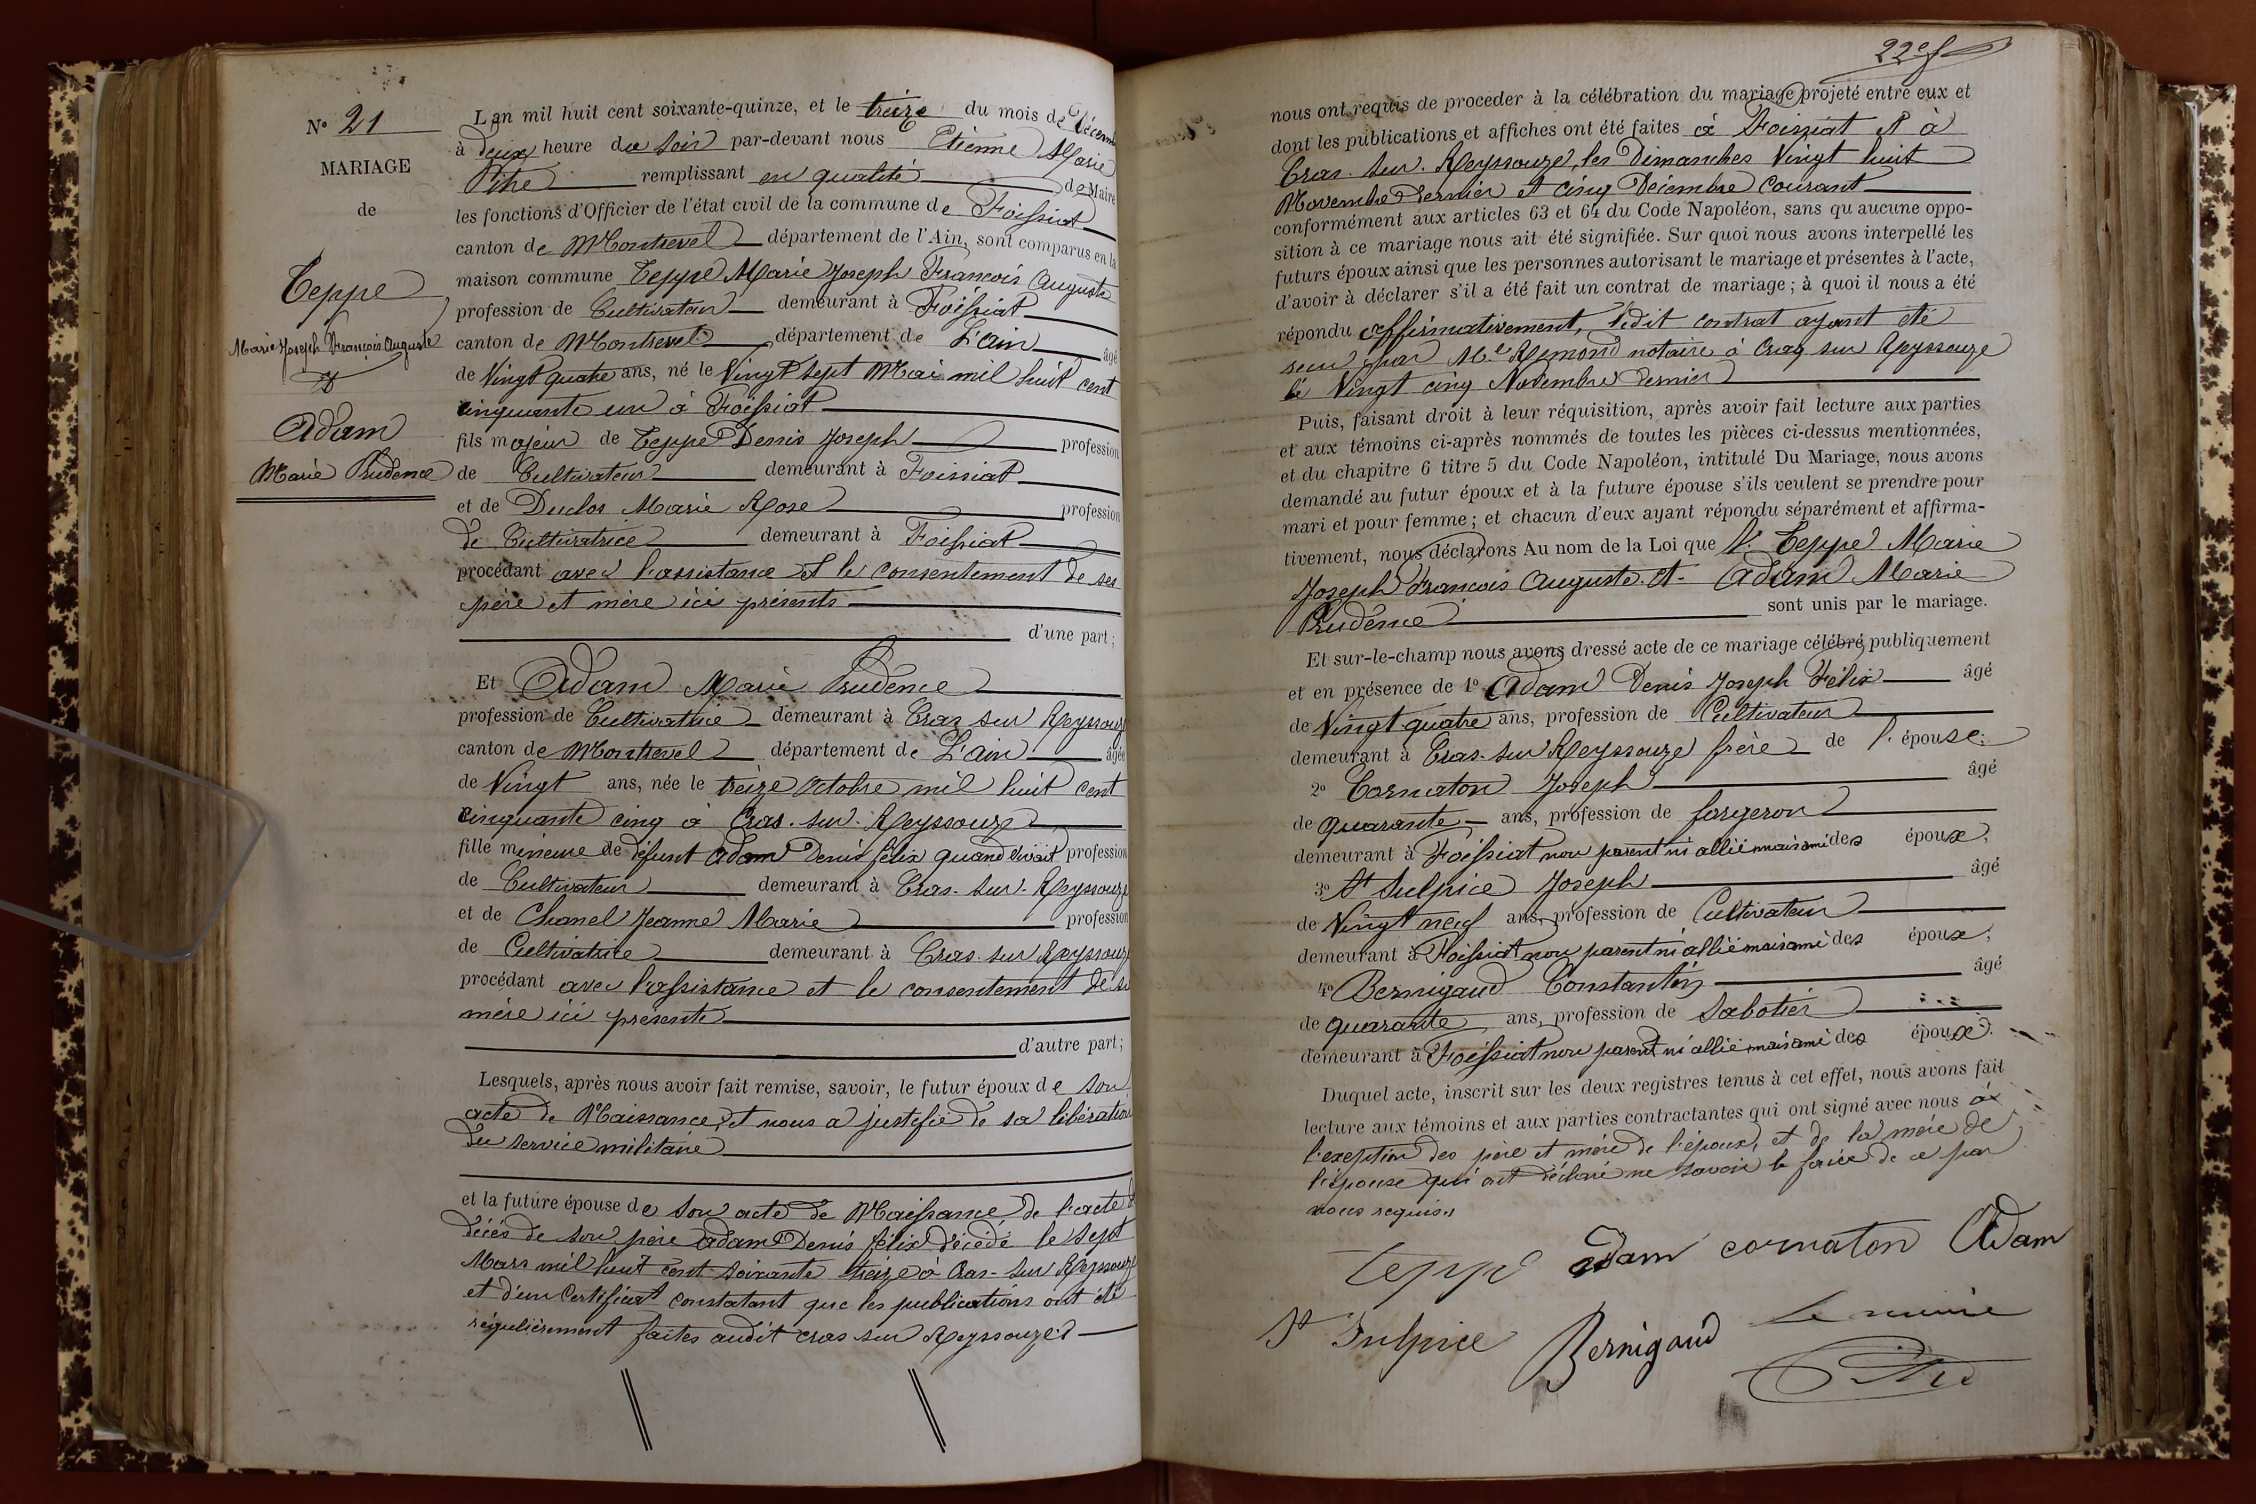 N° 21
MARIAGE
de
Teppe
Marie Joseph François Auguste
&
Adam
Marie Prudence
L'an mil huit cent soixante-quinze, et le treize du mois de Décembre
à deux heure du soir par-devant nous Etienne Marie
Pitre remplissant en qualité de Maire
les fonctions d'Officier de l'état civil de la commune de Foissiat
canton de Montrevel département de l'Ain, sont comparus en la
maison commune Teppe Marie Joseph François Auguste
profession de Cultivateur demeurant à Foissiat
canton de Montrevel département de L'ain âgé
de Vingt quatre ans, né le Vingt sept Mai mil huit cent
cinquante un à Foissiat
fils majeur de Teppe Denis Joseph profession
de Cultivateur demeurant à Foissiat
et de Duclos Marie Rose profession
de Cultivatrice demeurant à Foissiat
procédant avec l'assistance et le consentement de ses
père et mère ici présents
d'une part;
Et Adam Marie Prudence
profession de Cultivatrice demeurant à Cras sur Reyssouze
canton de Montrevel département de L'ain âgée
de Vingt ans, née le treize Octobre mil huit cent
cinquante cinq à Cras-sur-Reyssouze
fille mineure de défunt Adam Denis félix quand vivait profession
de Cultivateur demeurant à Cras-sur-Reyssouze
et de Chanel Jeanne Marie profession
de Cultivatrice demeurant à Cras-sur Reyssouze
procédant avec l'assistance et le consentement de sa
mère ici présente
d'autre part;
Lesquels, après nous avoir fait remise, savoir, le futur époux de son
acte de Naissance, et nous a justifié de sa libération
du service militaire
et la future épouse de son acte de Naissance de l'acte de
décès de son père Adam Denis félix décédé le sept
Mars mil huit cent soixante treize à Cras-sur Reyssouze
et d'un certificat constatant que les publications ont été
régulièrement faites audit cras sur Reyssouze
22e f
nous ont requis de proceder à la célébration du mariage projeté entre eux et
dont les publications et affiches ont été faites à Foissiat et à
Cras-sur-Reyssouze, les Dimanches Vingt huit
Novembre dernier et cinq Décembre courant
conformément aux articles 63 et 64 du Code Napoléon, sans qu aucune oppo-
sition à ce mariage nous ait été signifiée. Sur quoi nous avons interpellé les
futurs époux ainsi que les personnes autorisant le mariage et présentes à l'acte,
d'avoir à déclarer s'il a été fait un contrat de mariage; à quoi il nous a été
répondu affirmativement, ledit contrat ayant été
reçu par Me Remond notaire à Cras sur Reyssouze
le Vingt cinq Novembre dernier
Puis, faisant droit à leur réquisition, après avoir fait lecture aux parties
et aux témoins ci-après nommés de toutes les pièces ci-dessus mentionnées,
et du chapitre 6 titre 5 du Code Napoléon, intitulé Du Mariage, nous avons
demandé au futur époux et à la future épouse s'ils veulent se prendre pour
mari et pour femme; et chacun d'eux ayant répondu séparément et affirma-
tivement, nous déclarons Au nom de la Loi que Teppe Marie
Joseph François Auguste et Adam Marie
Prudence sont unis par le mariage.
Et sur-le-champ nous avons dressé acte de ce mariage célébré publiquement
et en présence de 1° Adam Denis Joseph Félix âgé
de Vingt-quatre ans, profession de Cultivateur
demeurant à Cras-sur Reyssouze frère de l'épouse;
2° Cornaton Joseph âgé
de quarante ans, profession de forgeron
demeurant à Foissiat non parent ni allié mais ami des époux;
3° St Sulpice Joseph âgé
de Vingt neuf ans, profession de Cultivateur
demeurant à Foissiat non parent ni allié mais ami des époux;
4° Bernigaud Constantin âgé
de quarante ans, profession de Sabotier
demeurant à Foissiat non parent ni allié mais ami des époux.
Duquel acte, inscrit sur les deux registres tenus à cet effet, nous avons fait
lecture aux témoins et aux parties contractantes qui ont signé avec nous à
l'exeption des père et mère de l'époux, et de la mère de
l'épouse qui ont déclaré ne savoir le faire de ce par
nous requis.
Teppe adam cornaton Adam
St Sulpice Bernigaud Le maire
Pitre